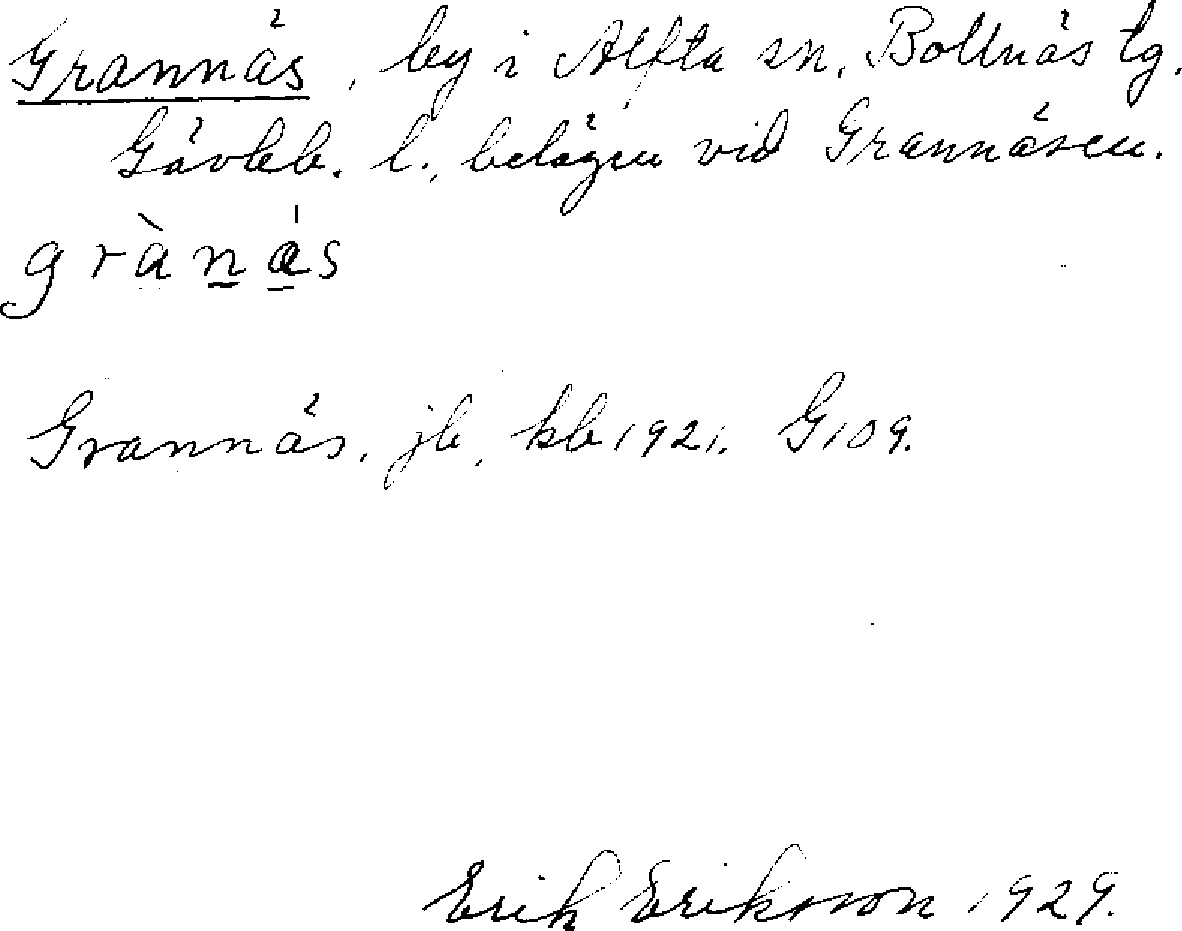 Grannäs, by i Alfta sn, Bollnäs tg.
Gävleb. l., belägen vid Grannäsen.
grànás
Grannäs, jb, kb 1921. G 109.
Erik Eriksson 1929.